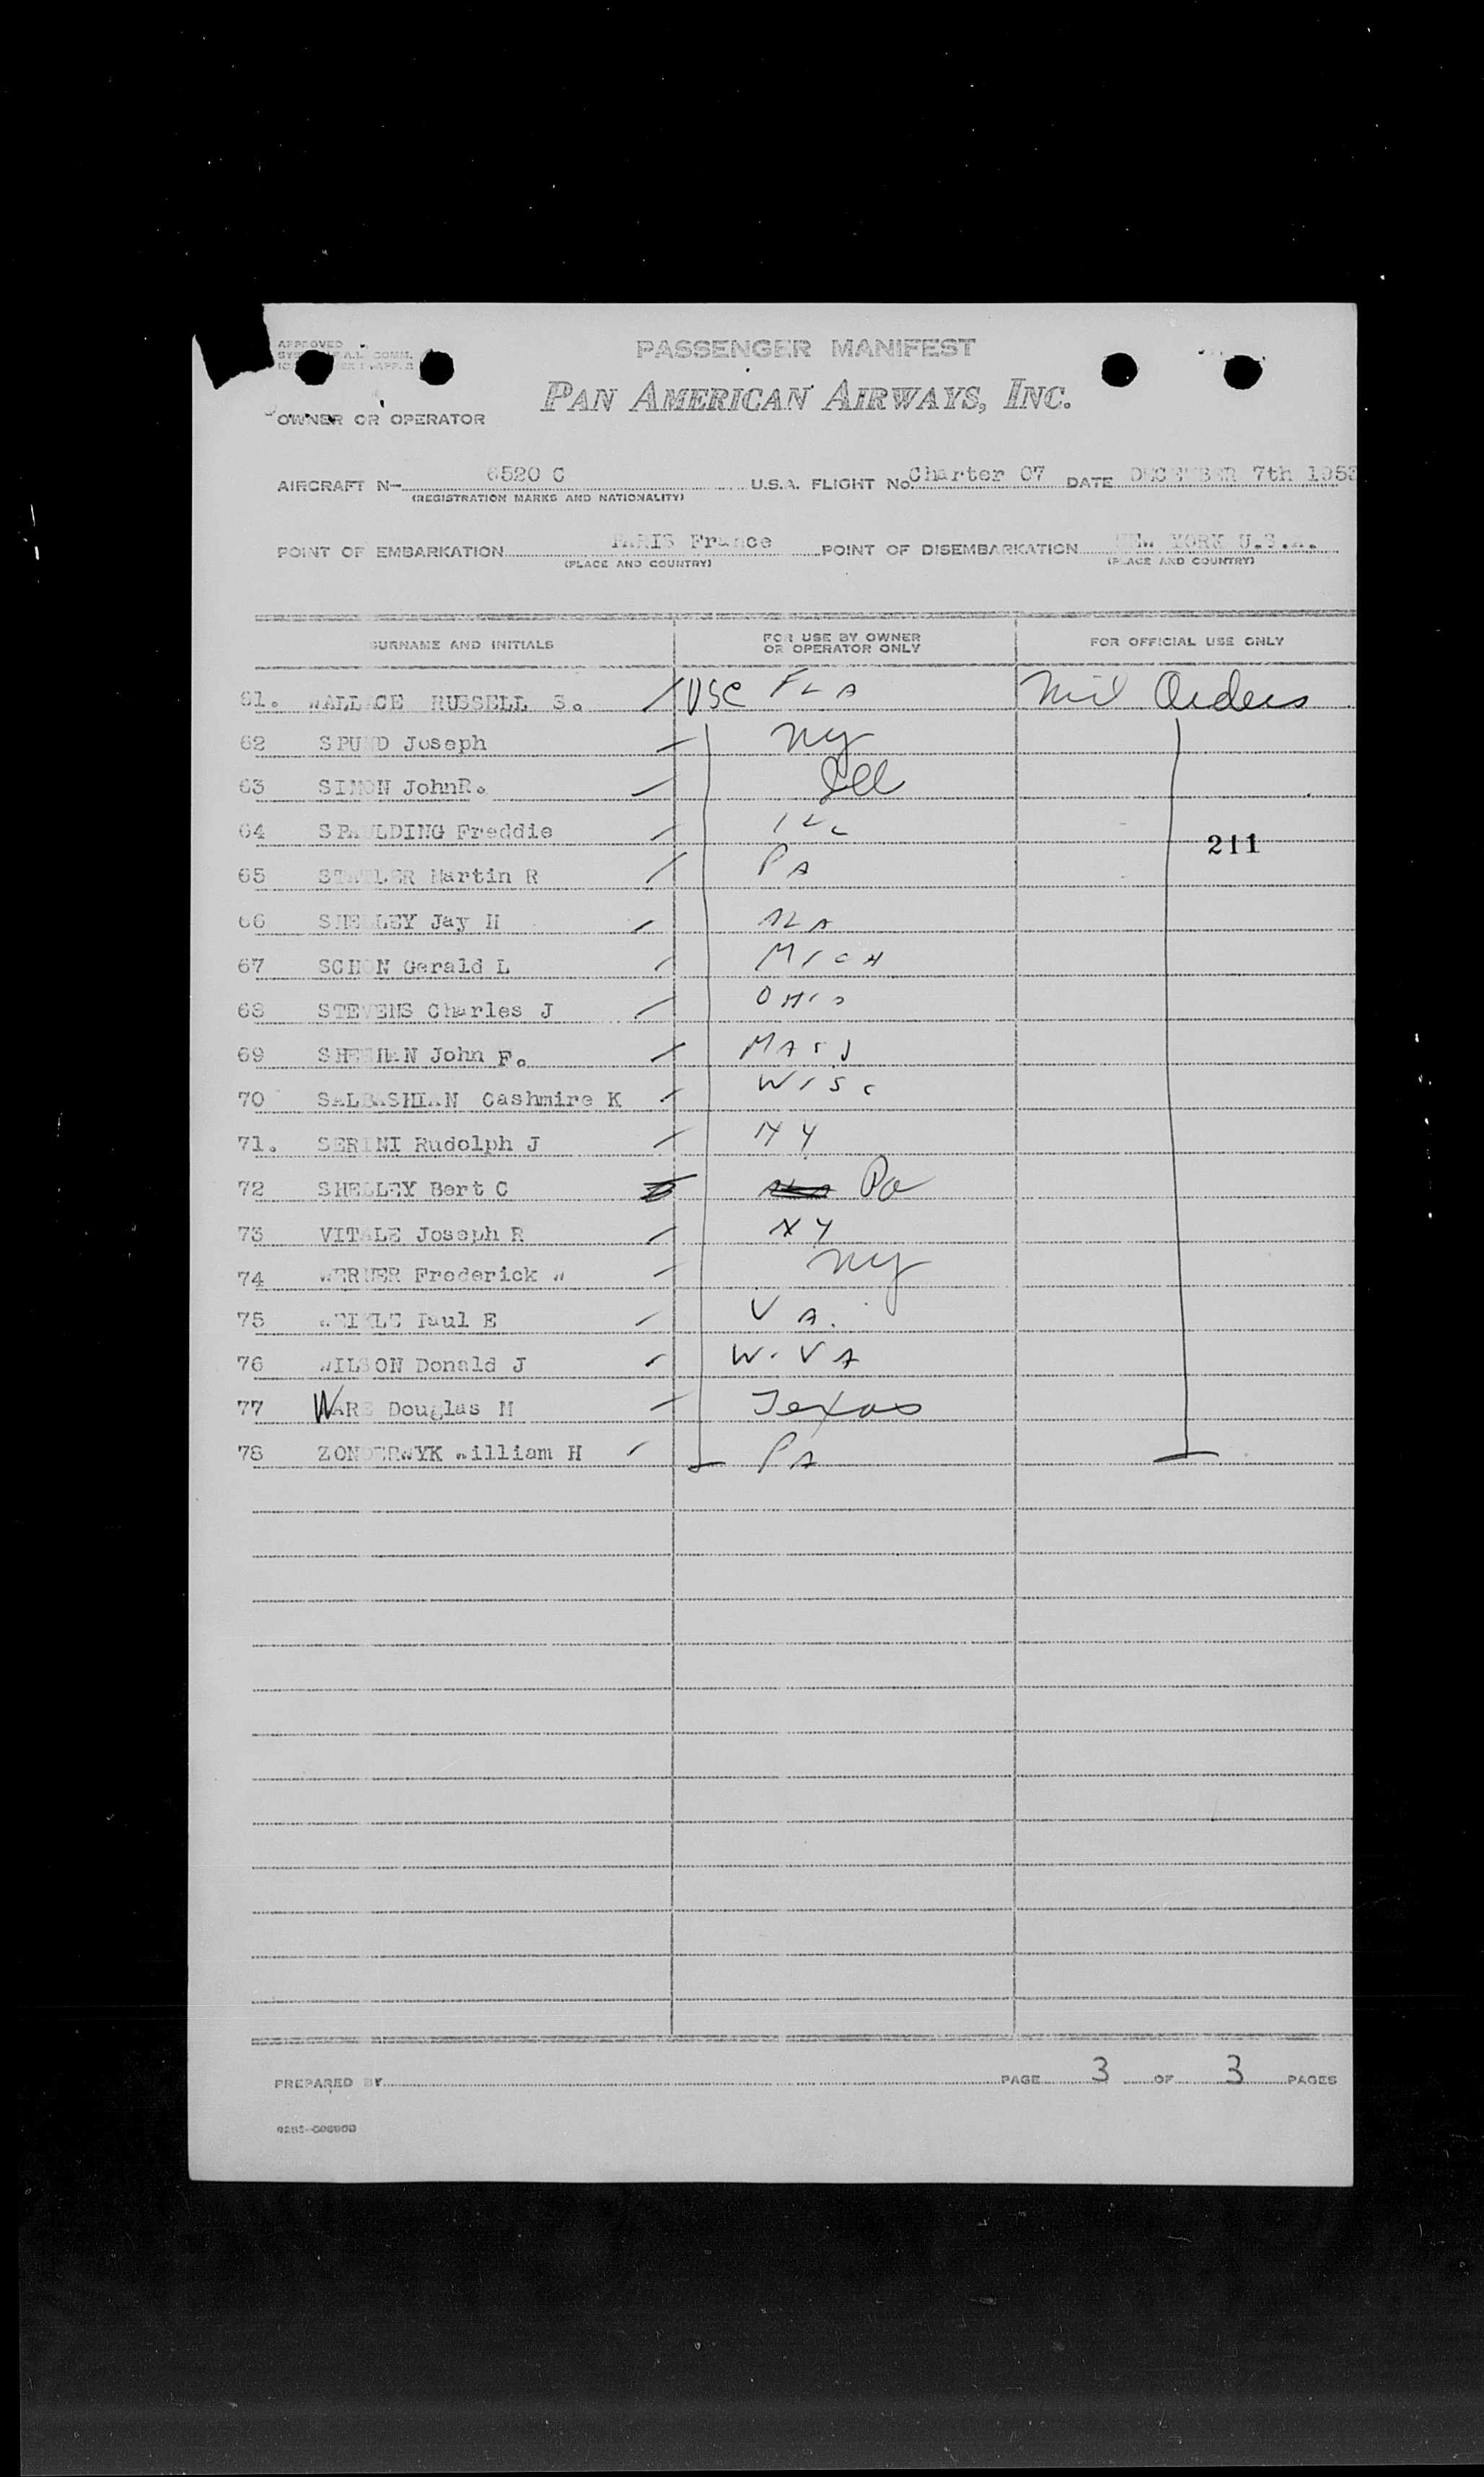 APPROVED
PASSENGER MANIFEST
PAN AMERICAN AIRWAYS, INC.
OWNER OR OPERATOR
AIRCRAFT N- 6520 C U.S.A. FLIGHT No Charter 07 DATE DECEMBER 7th 1953
(REGISTRATION MARKS AND NATIONALITY)
POINT OF EMBARKATION PARIS France POINT OF DISEMBARKATION NEW YORK U.S.A.
(PLACE AND COUNTRY) (PLACE AND COUNTRY)
SURNAME AND INITIALS FOR USE BY OWNER OR OPERATOR ONLY FOR OFFICIAL USE ONLY
61. WALLACE RUSSELL S. USC FLA Mil Orders
62 SPUND Joseph NY
63 SIMON JohnR. Ill
64 SPAULDING Freddie ILL
211
65 Martin R PA
66 SHELLEY Jay H ALA
67 SCHON Gerald L MICH
68 STEVENS Charles J OHIO
69 SHEEHAN John F. MASS
70 SALBASHIAN Cashmire K WISC
71. SERINI Rudolph J NY
72 SHELLEY Bert C Pa
73 VITALE Joseph R NY
74 WERNER Frederick W NY
75 Paul E VA.
76 WILSON Donald J W. VA
77 WARE Douglas M Texas
78 ZONDERWYK William H PA
PREPARED BY PAGE 3 OF 3 PAGES